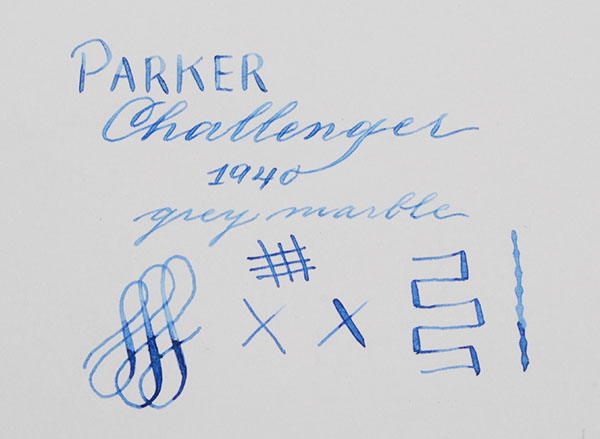 PARKER
Challenger
1940
grey marble